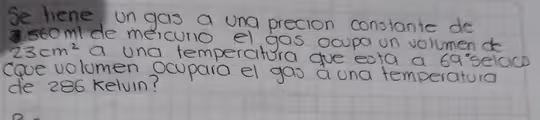 Se tiene un gas a una precion constante de
560ml de mercurio el gas ocupa un volumen de
23cm² a una temperatura que esta a 69°
cque volumen ocupara el gas a una temperatura
de 286 Kelvin?